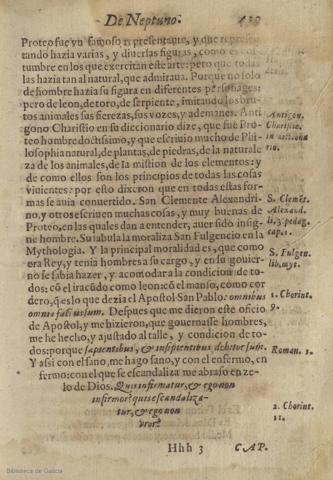 De Neptuno. 439
Proteo fue vn famoso representante, y que represen
tando hazia varias, y diuersas figuras, como es cos-
tumbre en los que exercitan este arte: pero que todas
las hazia tan al natural, que admiraua. Porque no solo
de hombre hazia su figura en diferentes personages:
pero de leon, de toro, de serpiente, imitando los bru-
tos animales sus fierezas, sus vozes, y ademanes. Anti
gono Charistio en su diccionario dize, que fue Pro-
teo hombre doctissimo, y que escriuio mucho de Phi-
losophia natural, de plantas, de piedras, de la naturale
za de los animales, de la mistion de los elementos: y
de como ellos son los principios de todas las cosas
viuientes: por esto dixeron que en todas estas for-
mas se auia conuertido. San Clemente Alexandri-
no, y otros escriuen muchas cosas, y muy buenas de
Proteo, en las quales dan a entender, auer sido insig-
ne hombre. Su fabula moraliza San Fulgencio en la
Mythologia. Y la principal moralidad es, que como
era Rey, y tenia hombres a su cargo, y en su gouier-
no se sabia hazer, y acomodar a la condicion de to-
dos: cō el iracūdo como leon: cō el manso, como cor
dero, q̄ es lo que dezia el Apostol San Pablo: omnibus
omnia factus sum. Despues que me dieron este oficio
de Apostol, y me hizieron, que gouernasse hombres,
me he hecho, y ajustado al talle, y condicion de to-
dos: porque sapientibus, & insipientibus debitor sum.
Y assi con el sano, me hago sano, y con el enfermo, en
fermo: con el que se escandaliza me abraso en ze-
lo de Dios. Quis infirmatur, & ego non
infirmor? quis escandaliza-
tur, & ego non
vror?
Hhh 3 CAP.
Antigon.
Charistio.
in dictiona
rio.
S. Clemēt.
Alexand.
li. 3. pedag.
cap. 1.
S. Fulgen.
lib. myt.
1. Chorint.
9.
Roman. 1.
2. Chorint.
11.
Biblioteca de Galicia